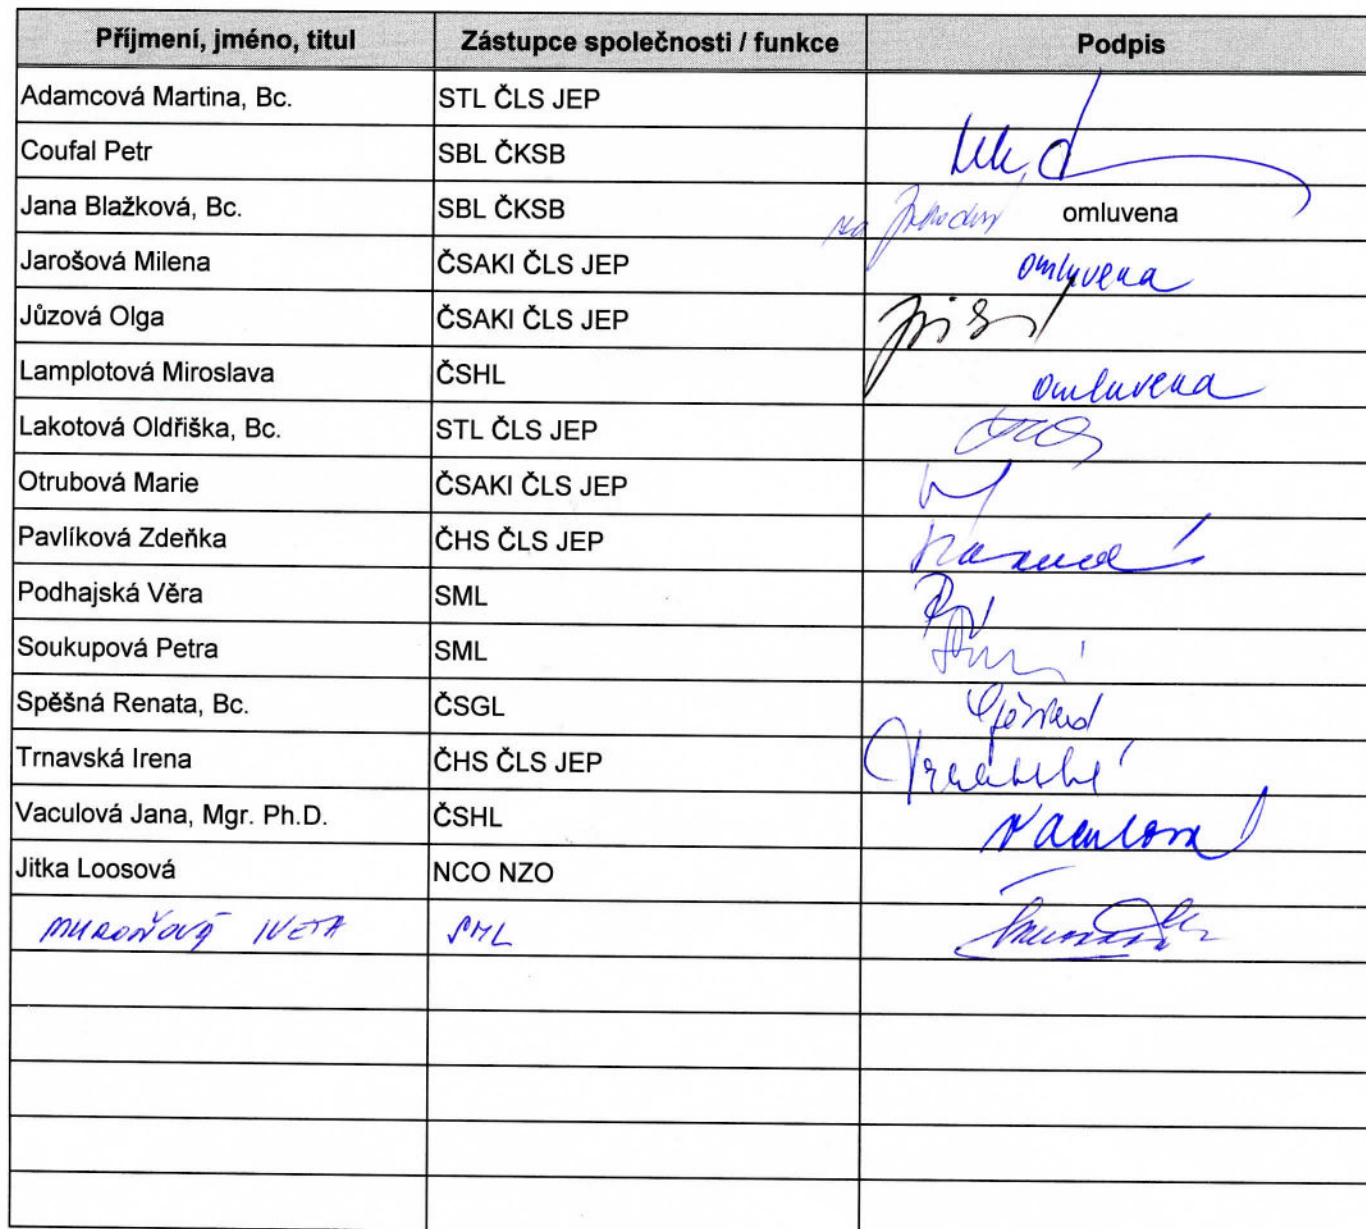 Příjmení, jméno, titul Zástupce společnosti / funkce Podpis
Adamcová Martina, Bc. STL ČLS JEP
Coufal Petr SBL ČKSB
Jana Blažková, Bc. SBL ČKSB omluvena
Jarošová Milena ČSAKI ČLS JEP omluvena
Jůzová Olga ČSAKI ČLS JEP
Lamplotová Miroslava ČSHL omluvena
Lakotová Oldřiška, Bc. STL ČLS JEP
Otrubová Marie ČSAKI ČLS JEP
Pavlíková Zdeňka ČHS ČLS JEP
Podhajská Věra SML
Soukupová Petra SML
Spěšná Renata, Bc. ČSGL
Trnavská Irena ČHS ČLS JEP
Vaculová Jana, Mgr. Ph.D. ČSHL Vaculová
Jitka Loosová NCO NZO
MUROŇOVÁ IVETA SML